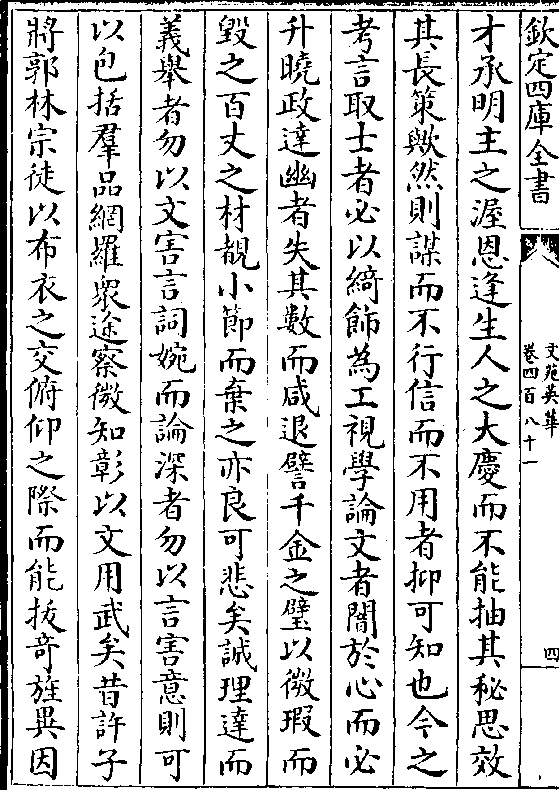 欽定四庫全書
文苑英華
卷四百八十一
四
才承明主之渥恩逢生人之大慶而不能抽其秘思效
其長策歟然則謀而不行信而不用者抑可知也今之
考言取士者必以綺飾為工視學論文者闇於心而必
升曉政達幽者失其數而咸退譬千金之璧以微瑕而
毀之百丈之材覩小節而棄之亦良可悲矣誠理達而
義舉者勿以文害言詞婉而論深者勿以言害意則可
以包括羣品網羅衆途察微知彰以文用武矣昔許子
將郭林宗徒以布衣之交俯仰之際而能拔奇旌異因